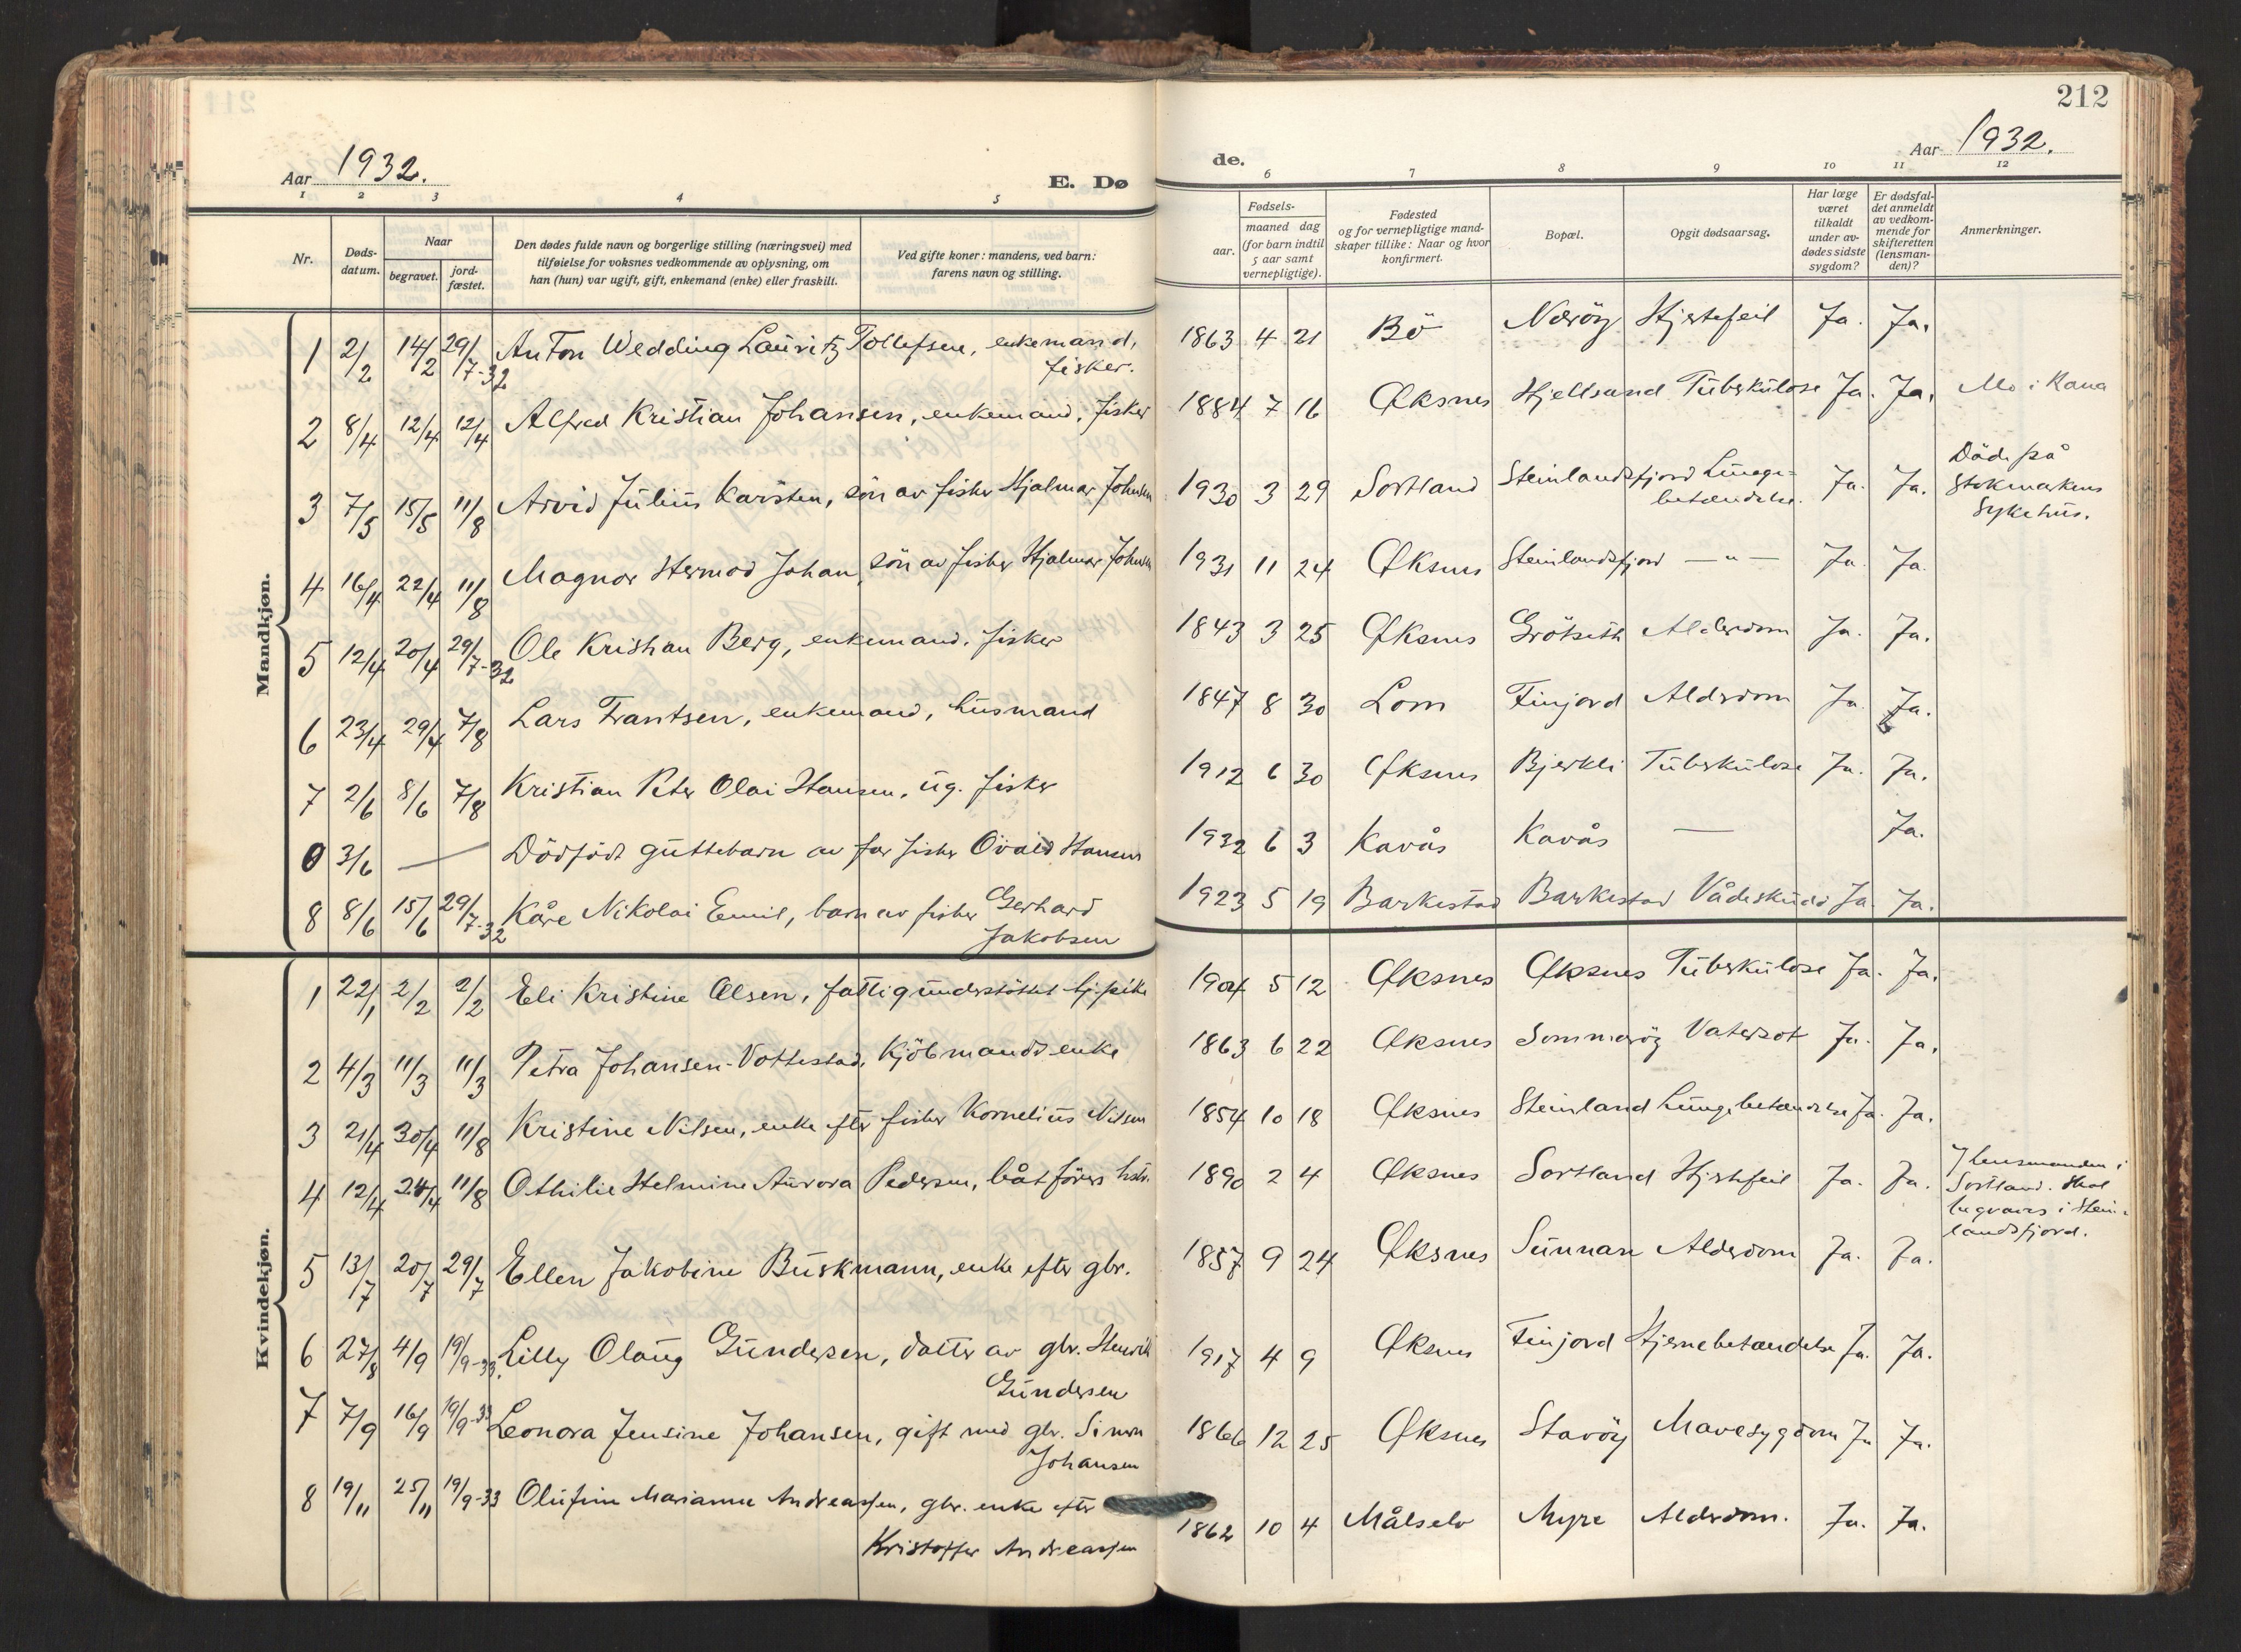 212
Aar 1932.
E. Dø
de.
Aar 1932.
1 2 3 4 5 6 7 8 9 10 11 12
Nr.
Døds-
datum.
Naar
begravet.
jord-
fæstet.
Den dødes fulde navn og borgerlige stilling (næringsvei) med
tilføielse for voksnes vedkommende av oplysning, om
han (hun) var ugift, gift, enkemand (enke) eller fraskilt.
Ved gifte koner: mandens, ved barn:
farens navn og stilling.
Fødsels-
aar.
maaned dag
(for barn indtil
5 aar samt
vernepligtige).
Fødested
og for vernepligtige mand-
skaper tillike: Naar og hvor
konfirmert.
Bopæl.
Opgit dødsaarsag.
Har læge
været
tilkaldt
under av-
dødes sidste
sygdom?
Er dødsfal-
det anmeldt
av vedkom-
mende for
skifteretten
(lensman-
den)?
Anmerkninger.
Mandkjøn.
1 2/2 14/2 29/7-32 Anton Wedding Lauritz Tollefsen, enkemand, 1863 4 21 Bö Næröy Hjertefeil Ja. Ja.
fisker.
2 8/4 12/4 12/4 Alfred Kristian Johansen, enkemand, fisker 1884 7 16 Øksnes Hjellsand Tüberkülose Ja. Ja. Mo i Rana
3 7/5 15/5 11/8 Arvid Jülius Karsten, sön av fisker Hjalmar Johnsen 1930 3 29 Sortland Steinlandsfjord Lünge-
betændelse. Ja. Ja. Döde på
Stokmarknes
Sykehüs.
4 16/4 22/4 11/8 Magnor Hermod Johan, sön av fisker Hjalmar Johnsen 1931 11 24 Øksnes Steinlandsfjord — " — Ja. Ja.
5 12/4 20/4 29/7-32 Ole Kristian Berg, enkemand, fisker 1843 3 25 Øksnes Grötseth Alderdom Ja. Ja.
6 23/4 29/4 7/8 Lars Frantsen, enkemand, hüsmand 1847 8 30 Lom Finjord Alderdom Ja. Ja.
7 2/6 8/6 7/8 Kristian Peter Olai Hansen, üg. fisker 1912 6 30 Øksnes Bjerkli Tüberkülose Ja. Ja.
0 3/6 — Dödfödt güttebarn av far fisker Hansen 1932 6 3 Kavås Kavås — Ja.
8 8/6 15/6 29/7-32 Kåre Nikolai Emil, barn av fisker Gerhard 1923 5 19 Barkestad Barkestad Vådesküdd Ja. Ja.
Jakobsen
Kvindekjøn.
1 22/1 2/2 2/2 Eli Kristine Olsen, fattigünderstöttet tj.pike 1904 5 12 Øksnes Øksnes Tüberkülose Ja. Ja.
2 4/3 11/3 11/3 Petra Johansen-Vottestad, Kjöbmands enke 1863 6 22 Øksnes Sommeröy Vatersot Ja. Ja.
3 21/4 30/4 11/8 Kristine Nilsen, enke efter fisker Kornelius Nilsen 1854 10 18 Øksnes Steinland Lüngebetændelse Ja. Ja.
4 12/4 24/4 11/8 Othilie Helmine Aürora Pedersen, båtförers hstr. 1890 2 4 Øksnes Sortland Hjertefeil Ja. Ja. lensmanden i
Sortland. Skal
begraves i Stein-
landsfjord.
5 13/7 20/7 29/7 Ellen Jakobine Büskmann, enke efter gbr. 1857 9 24 Øksnes Sünnan Alderdom Ja. Ja.
6 27/8 4/9 19/9-33. Lilly Olaüg Gündersen, datter av gbr. Henrik 1917 4 9 Øksnes Finjord Hjernebetændelse Ja. Ja.
Gündersen
7 7/9 16/9 19/9-33 Leonora Jensine Johansen, gift med gbr. Simon 1866 12 25 Øksnes Stavöy Mavesygdom Ja Ja.
Johansen
8 19/11 25/11 19/9-33 Olüfine Marianne Andreassen, gbr. enke efter 1862 10 4 Målselv Myre Alderdom. Ja. Ja.
Kristoffer Andreassen